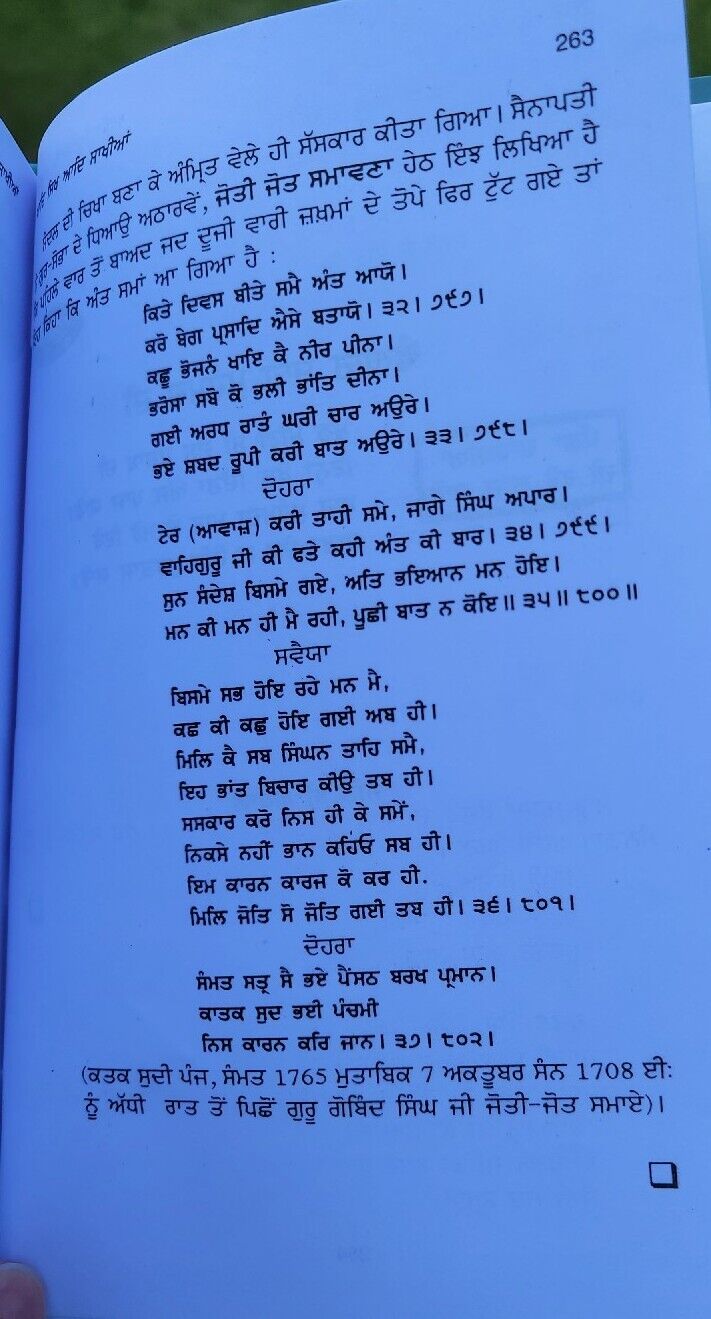 263
ਸਿਖ ਆਦਿ ਸਾਖੀਆਂ
ਚੰਦਨ ਦੀ ਚਿਖਾ ਬਣਾ ਕੇ ਅੰਮ੍ਰਿਤ ਵੇਲੇ ਹੀ ਸੱਸਕਾਰ ਕੀਤਾ ਗਿਆ। ਸੈਨਾਪਤੀ
ਗੁਰ-ਸੋਭਾ ਦੇ ਧਿਆਉ ਅਠਾਰਵੇਂ, ਜੋਤੀ ਜੋਤ ਸਮਾਵਣਾ ਹੇਠ ਇੰਝ ਲਿਖਿਆ ਹੈ
ਪਹਿਲੇ ਵਾਰ ਤੋਂ ਬਾਅਦ ਜਦ ਦੂਜੀ ਵਾਰੀ ਜ਼ਖ਼ਮਾਂ ਦੇ ਤੋਪੇ ਫਿਰ ਟੁੱਟ ਗਏ ਤਾਂ
ਕਿਹਾ ਕਿ ਅੰਤ ਸਮਾਂ ਆ ਗਿਆ ਹੈ :
ਕਿਤੇ ਦਿਵਸ ਬੀਤੇ ਸਮੈ ਅੰਤ ਆਯੋ।
ਕਰੋ ਬੇਗ ਪ੍ਰਸਾਦਿ ਐਸੇ ਬਤਾਯੋ। ੩੨। ੭੯੭।
ਕਛੂ ਭੋਜਨੰ ਖਾਇ ਕੈ ਨੀਰ ਪੀਨਾ।
ਭਰੋਸਾ ਸਬੋ ਕੋ ਭਲੀ ਭਾਂਤਿ ਦੀਨਾ।
ਗਈ ਅਰਧ ਰਾਤੰ ਘਰੀ ਚਾਰ ਅਉਰੇ।
ਭਏ ਸ਼ਬਦ ਰੂਪੀ ਕਰੀ ਬਾਤ ਅਉਰੇ। ੩੩। ੭੯੮।
ਦੋਹਰਾ
ਟੇਰ (ਆਵਾਜ਼) ਕਰੀ ਤਾਹੀ ਸਮੇ, ਜਾਗੇ ਸਿੰਘ ਅਪਾਰ।
ਵਾਹਿਗੁਰੂ ਜੀ ਕੀ ਫਤੇ ਕਹੀ ਅੰਤ ਕੀ ਬਾਰ। ੩੪। ੭੯੯।
ਸੁਨ ਸੰਦੇਸ਼ ਬਿਸਮੇ ਗਏ, ਅਤਿ ਭਇਆਨ ਮਨ ਹੋਇ।
ਮਨ ਕੀ ਮਨ ਹੀ ਮੈ ਰਹੀ, ਪੂਛੀ ਬਾਤ ਨ ਕੋਇ॥ ੩੫॥ ੮੦੦॥
ਸਵੈਯਾ
ਬਿਸਮੇ ਸਭ ਹੋਇ ਰਹੇ ਮਨ ਮੈ,
ਕਛ ਕੀ ਕਛੁ ਹੋਇ ਗਈ ਅਬ ਹੀ।
ਮਿਲਿ ਕੈ ਸਬ ਸਿੰਘਨ ਤਾਹਿ ਸਮੈ,
ਇਹ ਭਾਂਤ ਬਿਚਾਰ ਕੀਉ ਤਬ ਹੀ।
ਸਸਕਾਰ ਕਰੋ ਨਿਸ ਹੀ ਕੇ ਸਮੇਂ,
ਨਿਕਸੇ ਨਹੀਂ ਭਾਨ ਕਹਿਓ ਸਬ ਹੀ।
ਇਮ ਕਾਰਨ ਕਾਰਜ ਕੋ ਕਰ ਹੀ.
ਮਿਲਿ ਜੋਤਿ ਸੋ ਜੋਤਿ ਗਈ ਤਬ ਹੀ। ੩੬। ੮੦੧।
ਦੋਹਰਾ
ਸੰਮਤ ਸਤ੍ਰ ਸੈ ਭਏ ਪੈਂਸਠ ਬਰਖ ਪ੍ਰਮਾਨ।
ਕਾਤਕ ਸੁਦ ਭਈ ਪੰਚਮੀ
ਨਿਸ ਕਾਰਨ ਕਰਿ ਜਾਨ। ੩੭। ੮੦੨।
(ਕਤਕ ਸੁਦੀ ਪੰਜ, ਸੰਮਤ 1765 ਮੁਤਾਬਿਕ 7 ਅਕਤੂਬਰ ਸੰਨ 1708 ਈ:
ਨੂੰ ਅੱਧੀ ਰਾਤ ਤੋਂ ਪਿਛੋਂ ਗੁਰੂ ਗੋਬਿੰਦ ਸਿੰਘ ਜੀ ਜੋਤੀ-ਜੋਤ ਸਮਾਏ)।